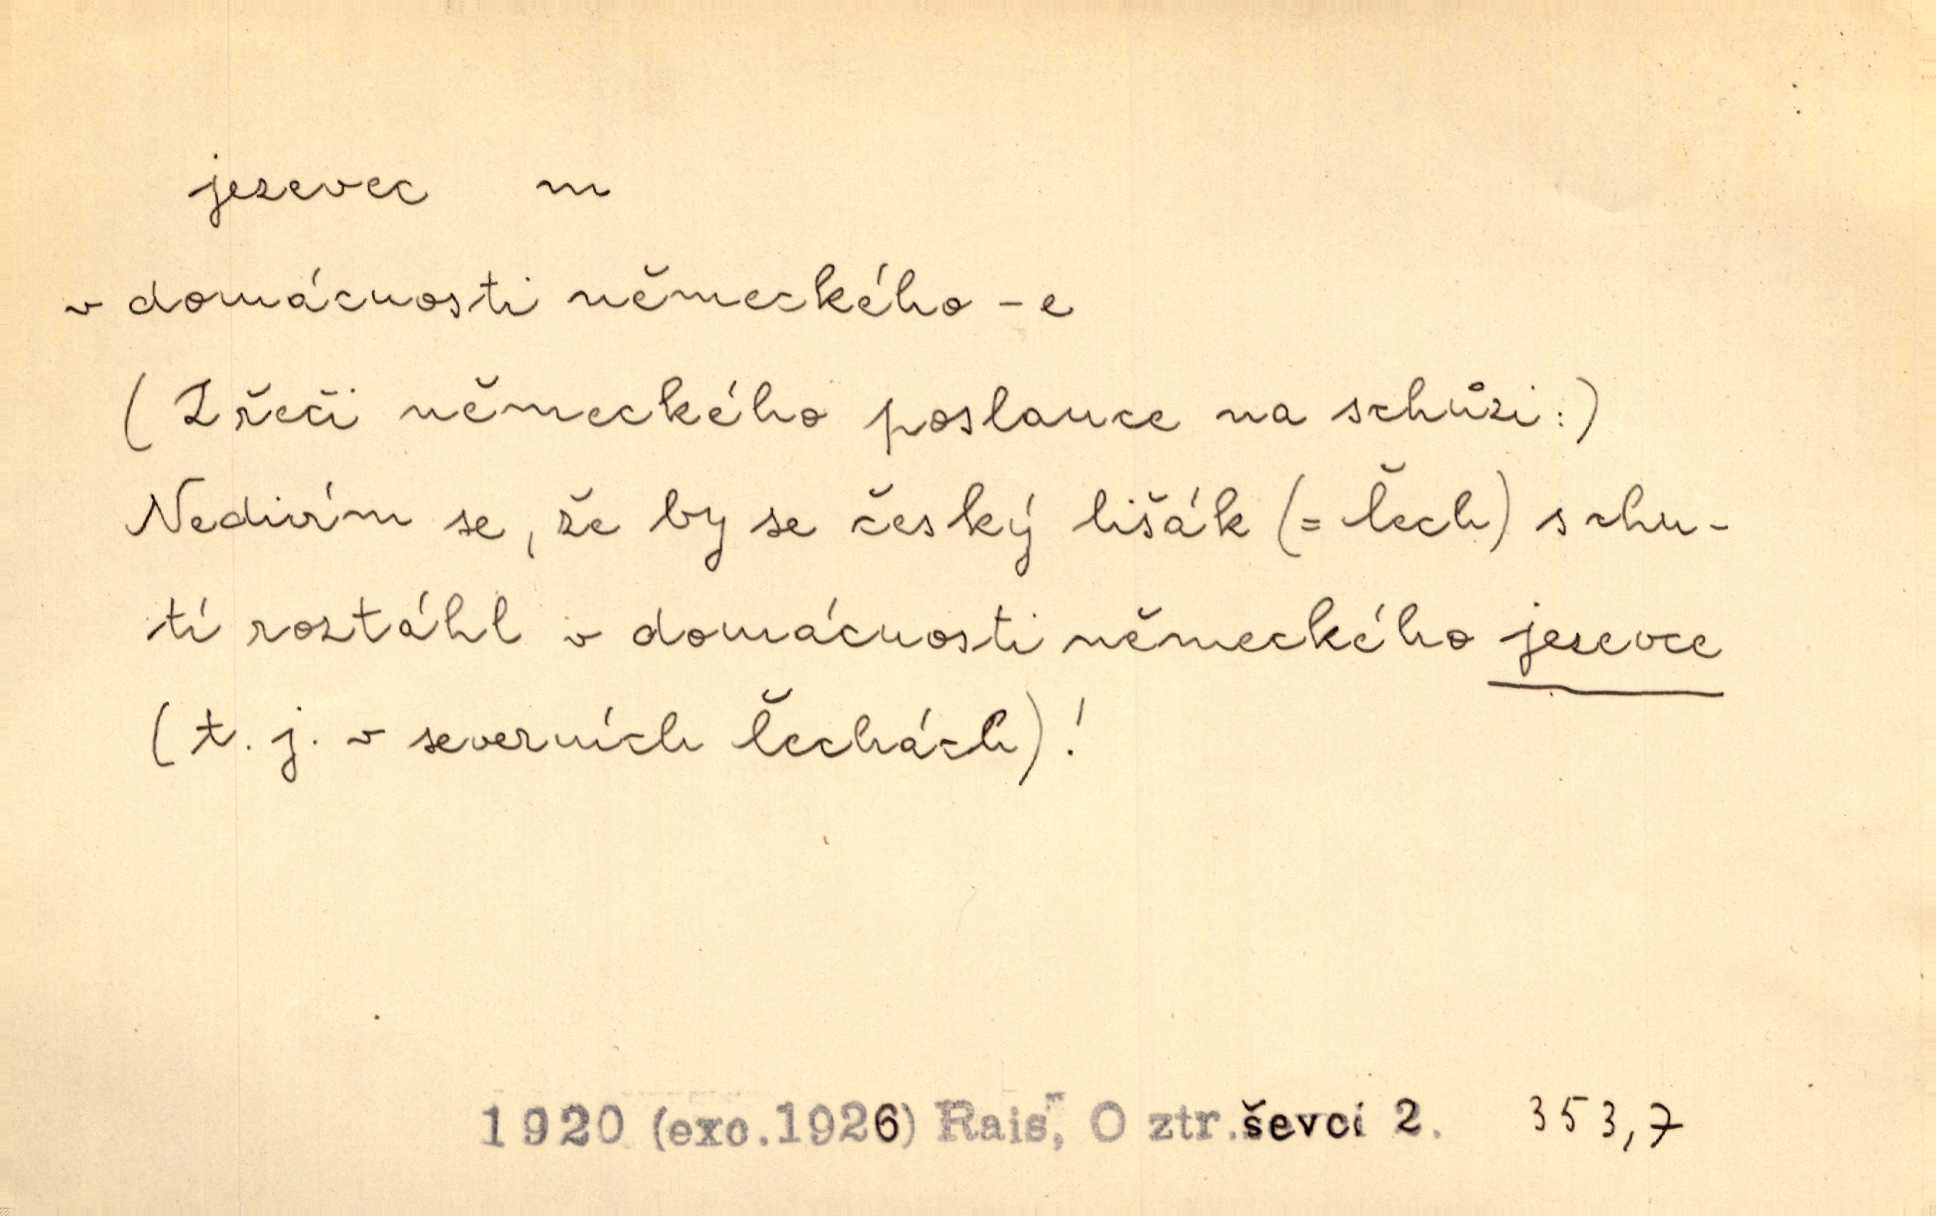 jezevec m
v domácnosti německého -e
(Z řeči německého poslance na schůzi:)
Nedivím se, že by se český lišák (= Čech) s chu-
tí roztáhl v domácnosti německého jezevce
(t. j. v severních Čechách)!
1920 (exc. 1926) Rais, O ztr. ševci 2. 353,7